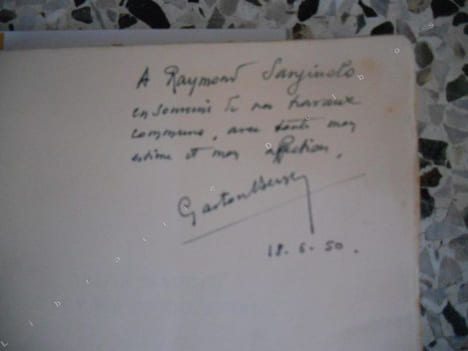 A Raymond
en souvenir de nos travaux
communs, avec toute mon
estime et mon affection.
Gaston
18-6-50.